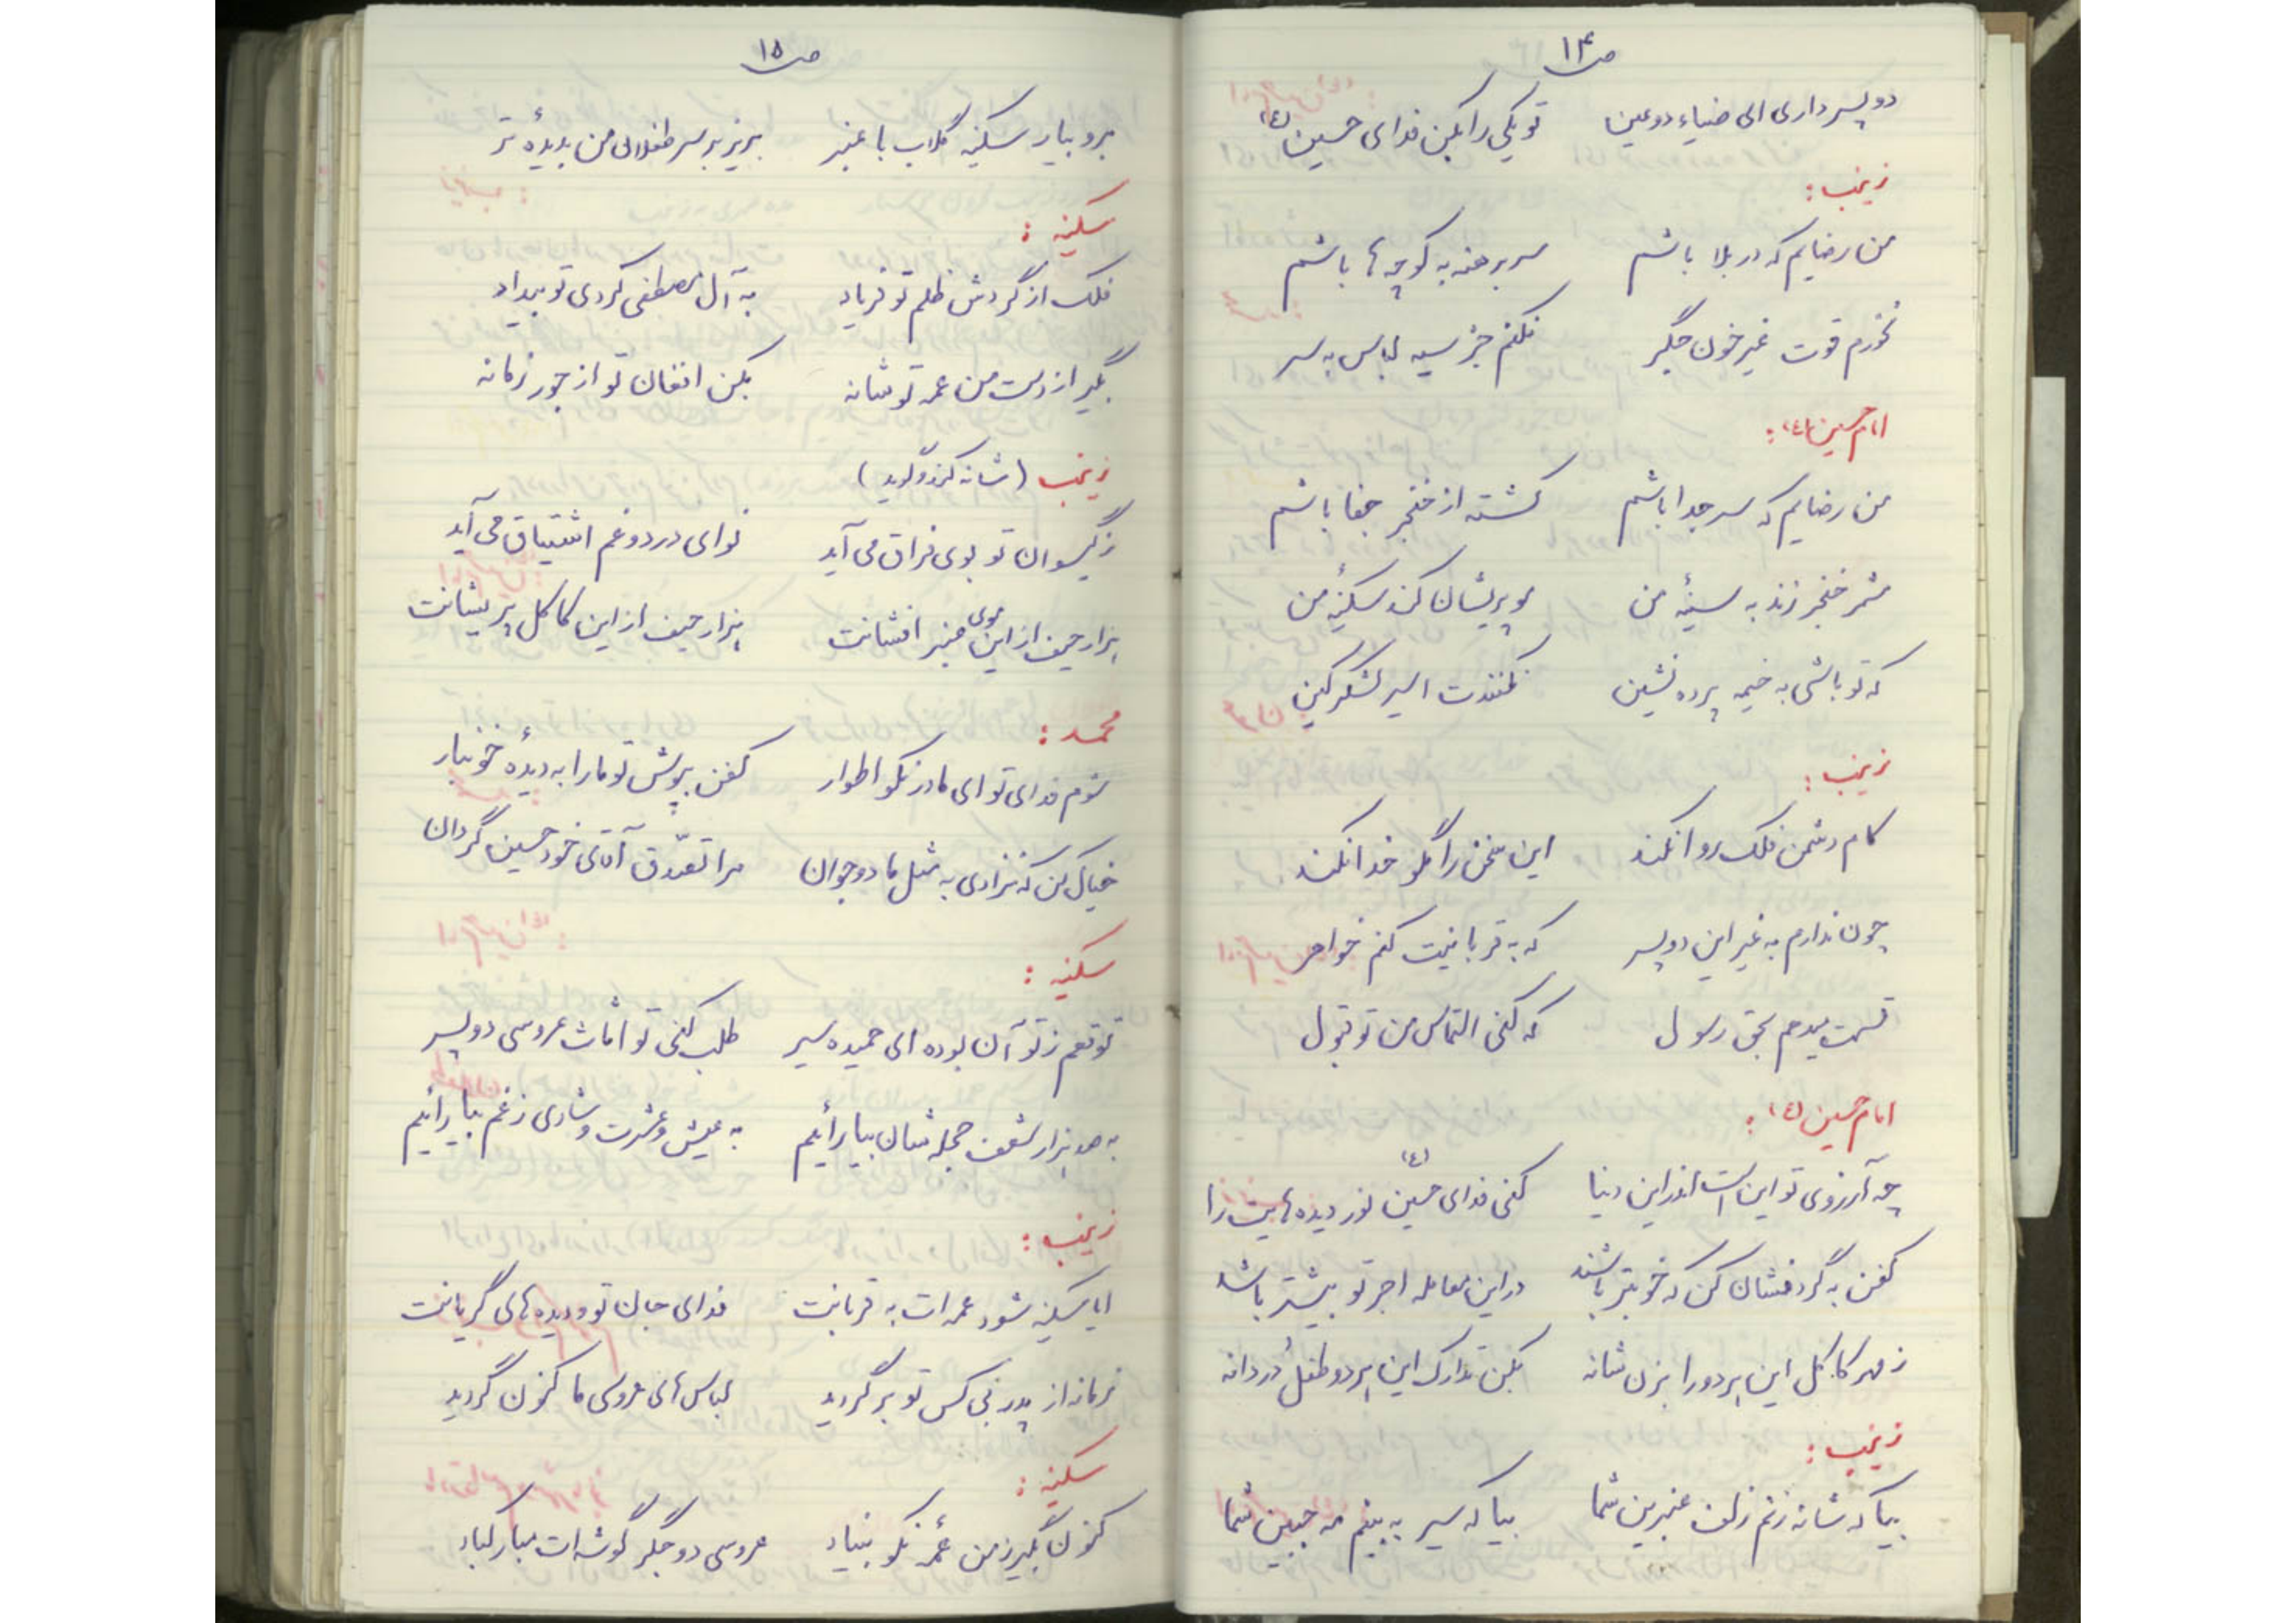 ص ۱۴
دو پسر داری ای ضیاء دو عین    تو یکی را بکن فدای حسین (ع)
زینب :
من رضایم که در بلا باشم    سر برهنه به کوچه ها باشم
نخورم قوت غیر خون جگر    نکنم جز سیه لباس به سر
امام حسین (ع) :
من رضایم که سر جدا باشم    کشته از خنجر جفا باشم
شمر خنجر زند به سینهٔ من    مو پریشان کند سکینهٔ من
که تو باشی به خیمه پرده نشین    نکنندت اسیر لشکر کین
زینب :
کام دشمن فلک روا نکند    این سخن را مگو خدا نکند
چون ندارم به غیر این دو پسر    که به قربانیت کنم خواهر
قسمت میدهم بحق رسول    که کنی التماس من تو قبول
امام حسین (ع) :
چه آرزوی تو این است اندر این دنیا    کنی فدای حسین (ع) نور دیده هایت را
کفن به گردنشان کن که خوبتر باشند    در این معامله اجر تو بیشتر باشد
ز مهر کاکل این هر دو را بزن شانه    بکن تدارک این هر دو طفل دردانه
زینب :
بیا که شانه زنم زلف عنبرین شما    بیا که سیر به بینم مه جبین شما
ص ۱۵
برو بیار سکینه گلاب با عنبر    بریز بر سر طفلان من بدیدهٔ تر
سکینه :
فلک از گردش ظلم تو فریاد    به آل مصطفی کردی تو بیداد
بگیر از دست من عمه تو شانه    بکن افغان تو از جور زمانه
زینب (شانه کند و گوید)
ز گیسوان تو بوی فراق می آید    نوای درد و غم اشتیاق می آید
هزار حیف از این موی عنبر افشانت    هزار حیف از این کاکل پریشانت
محمد :
شوم فدای تو ای مادر نکو اطوار    کفن بپوش تو ما را به دیدهٔ خونبار
خیال کن که نزادی به مثل ما دو جوان    مرا تصدّق آقای خود حسین گردان
سکینه :
توقعم ز تو آن بوده ای حمیده سیر    طلب کنی تو اثاث عروسی دو پسر
به صد هزار شعف حجله شان بیارائیم    به عیش و عشرت و شادی ز غم بیارائیم
زینب :
ایا سکینه شود عمه ات به قربانت    فدای جان تو و دیده های گریانت
زمانه از پدر بی کس تو برگردید    لباس های عروسی ما کفن گردید
سکینه :
کنون بگیر ز من عمّهٔ نکو بنیاد    عروسی دو جگر گوشه ات مبارکباد